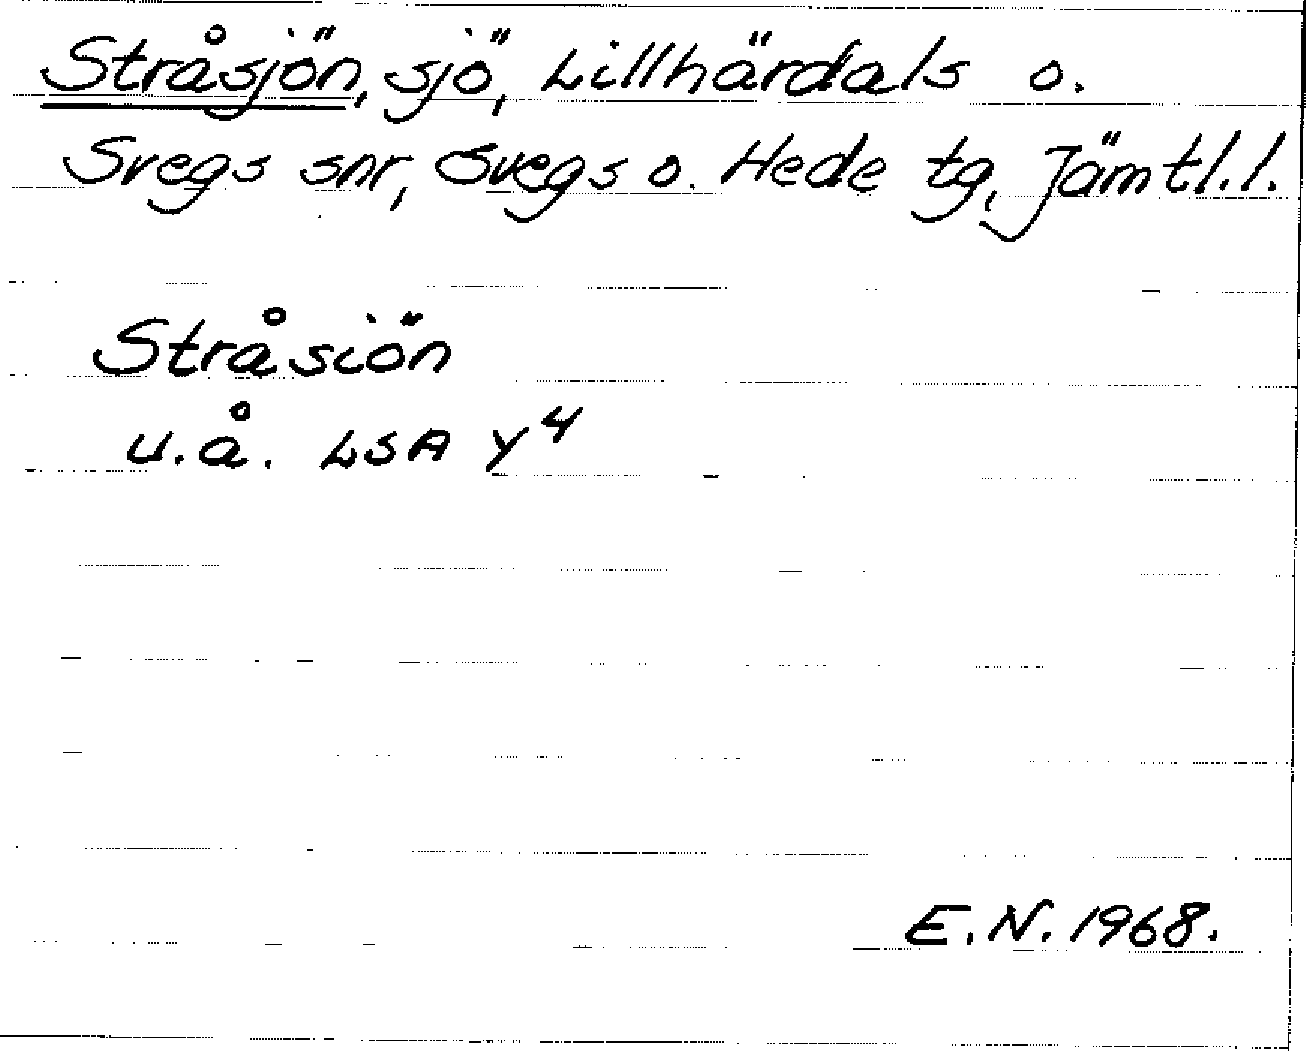 Stråsjön, sjö, Lillhärdals o.
Svegs snr, Svegs o. Hede tg, Jämtl.l.
Stråsiön
u.å. LSA Y4
E.N. 1968.